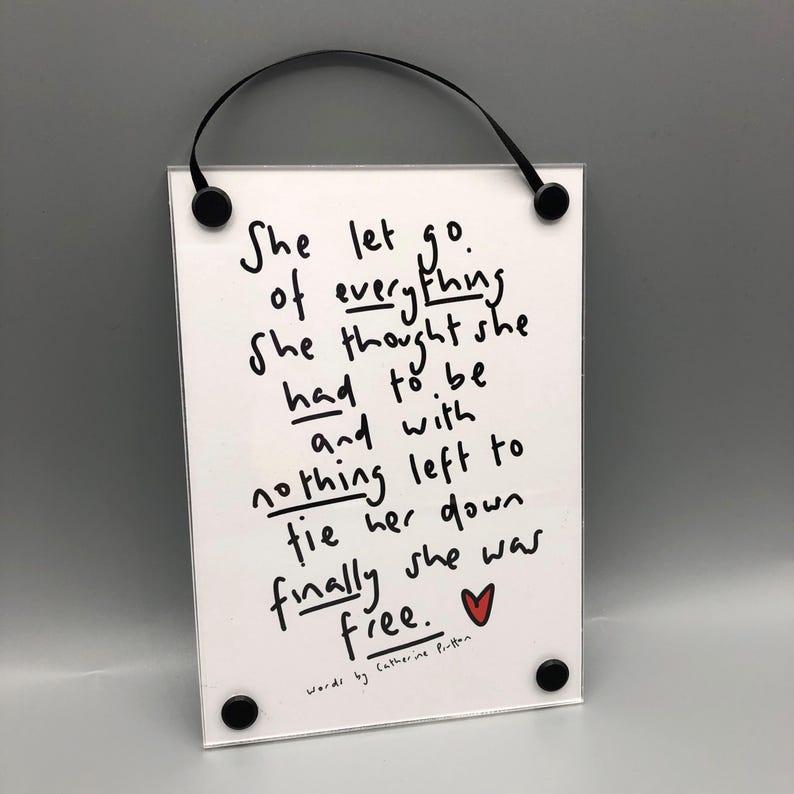 She let go.
of everything
She thought she
had to be
and with
nothing left to
tie her down
finally she was
free.
words by Catherine Prutton